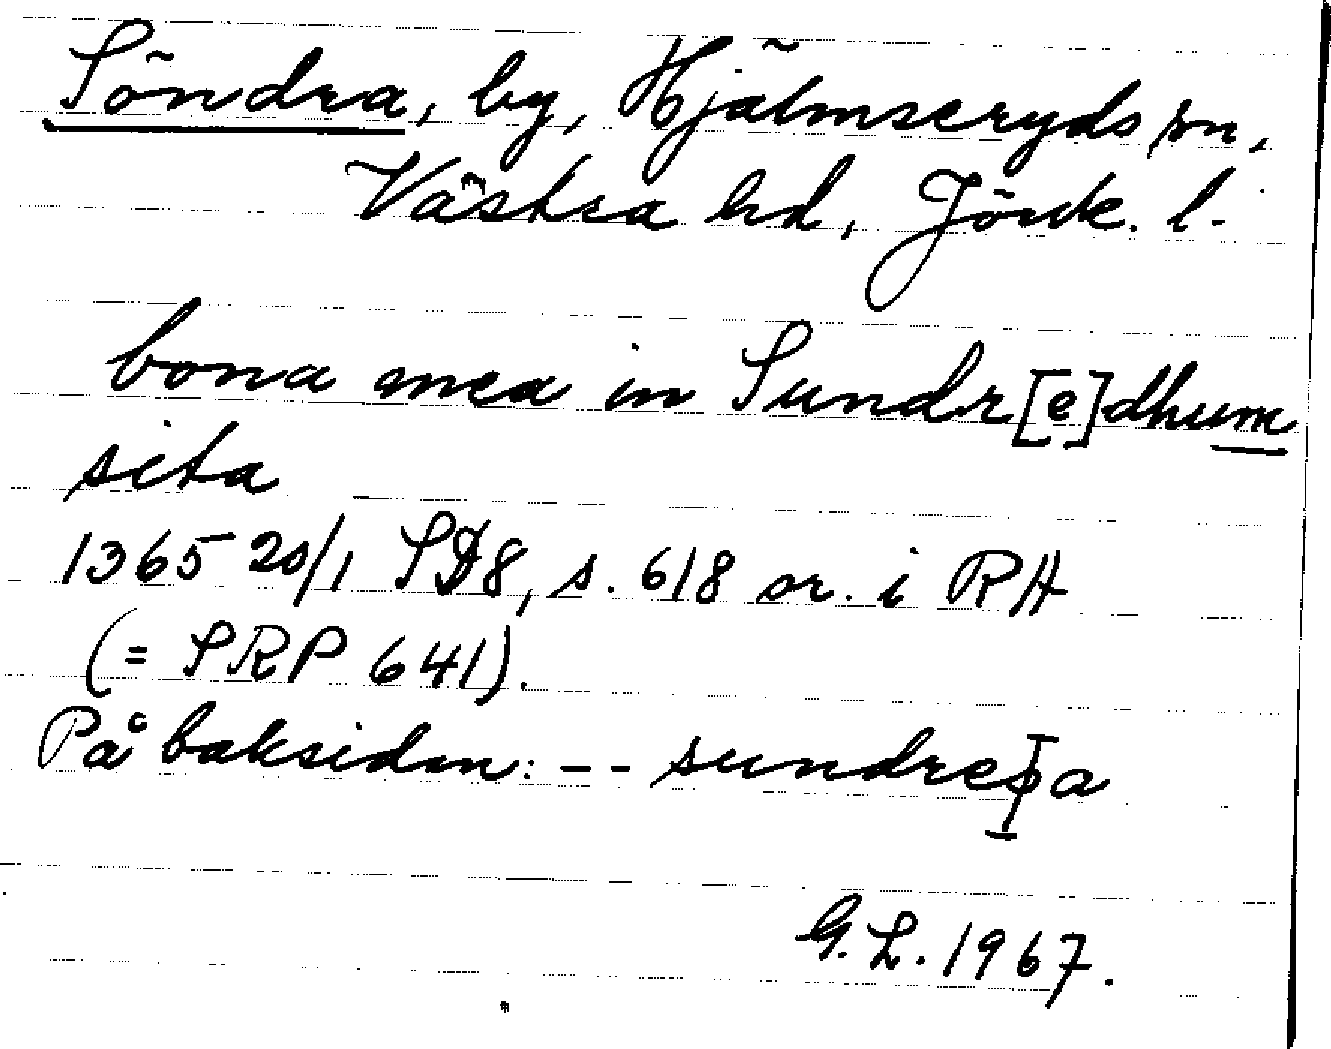 Söndra, by, Hjälmseryds sn,
Västra hd, Jönk. l.
bona mea in Sundr[e]dhum
sita
1365 20/1 SD8, s. 618 or. i RA
(= SRP 641).
På baksidan: -- sundreþa
G. L. 1967.